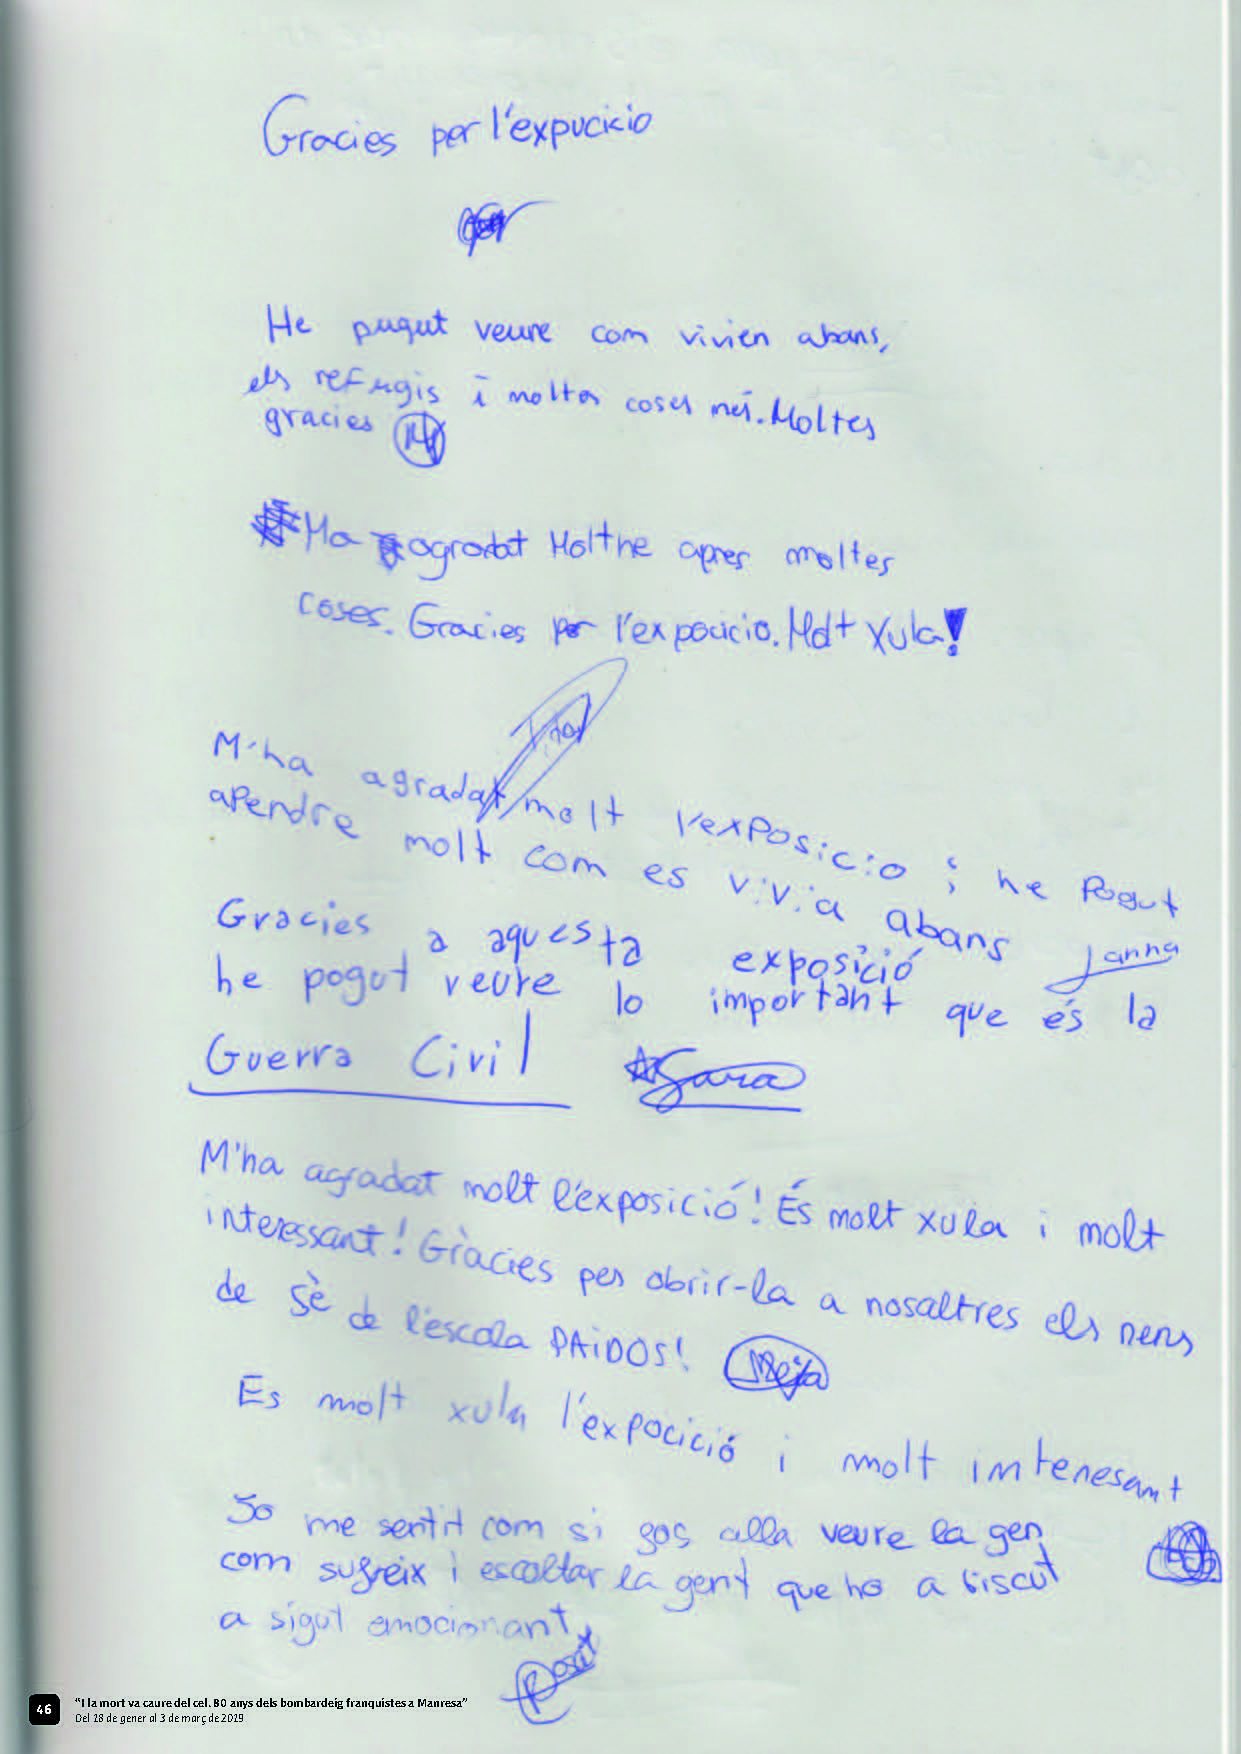 Gracies per l'expucicio
He pugut veure com vivien abans,
els refugis i moltes coses més. Moltes
gracies
Ha agradat Molt he apres moltes
coses. Gracies per l'expocicio. Molt xula!
M'ha agradat molt l'exposicio i he Pogut
aPendre molt com es vivia abans
Janna
Gracies a aquesta exposició
he pogut veure lo important que és la
Guerra Civil
Sara
M'ha agradat molt l'exposició! És molt xula i molt
interessant! Gràcies per obrir-la a nosaltres els nens
de sè de l'escola PAiDOS!
Es molt xula l'expocició i molt interesant
Jo me sentit com si gos alla veure la gen
com sufreix i escoltar la gent que ho a biscut
a sigut emocionant
46
"I la mort va caure del cel. 80 anys dels bombardeig franquistes a Manresa"
Del 18 de gener al 3 de març de 2019